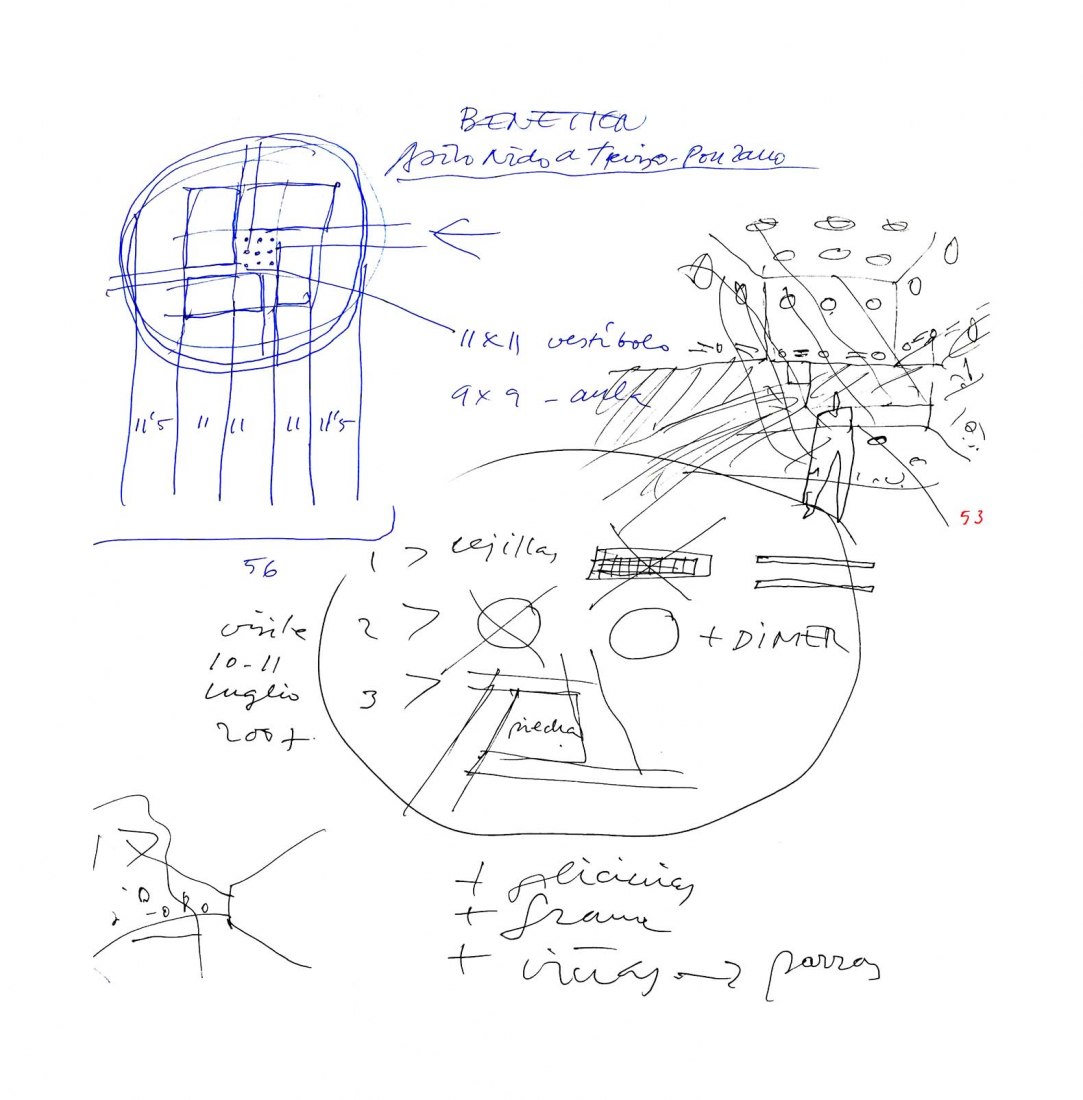 BENETTON
Asilo Nido a Treviso-Ponzano
11x11 vestíbolo
9x9 - aula
11'5 11 11 11 11'5
56
53
1 > rejillas
2 > + DIMER
visite
10-11
luglio
2007.
3 >
piedra
+ glicinias
+ grama
+ viñas → parras